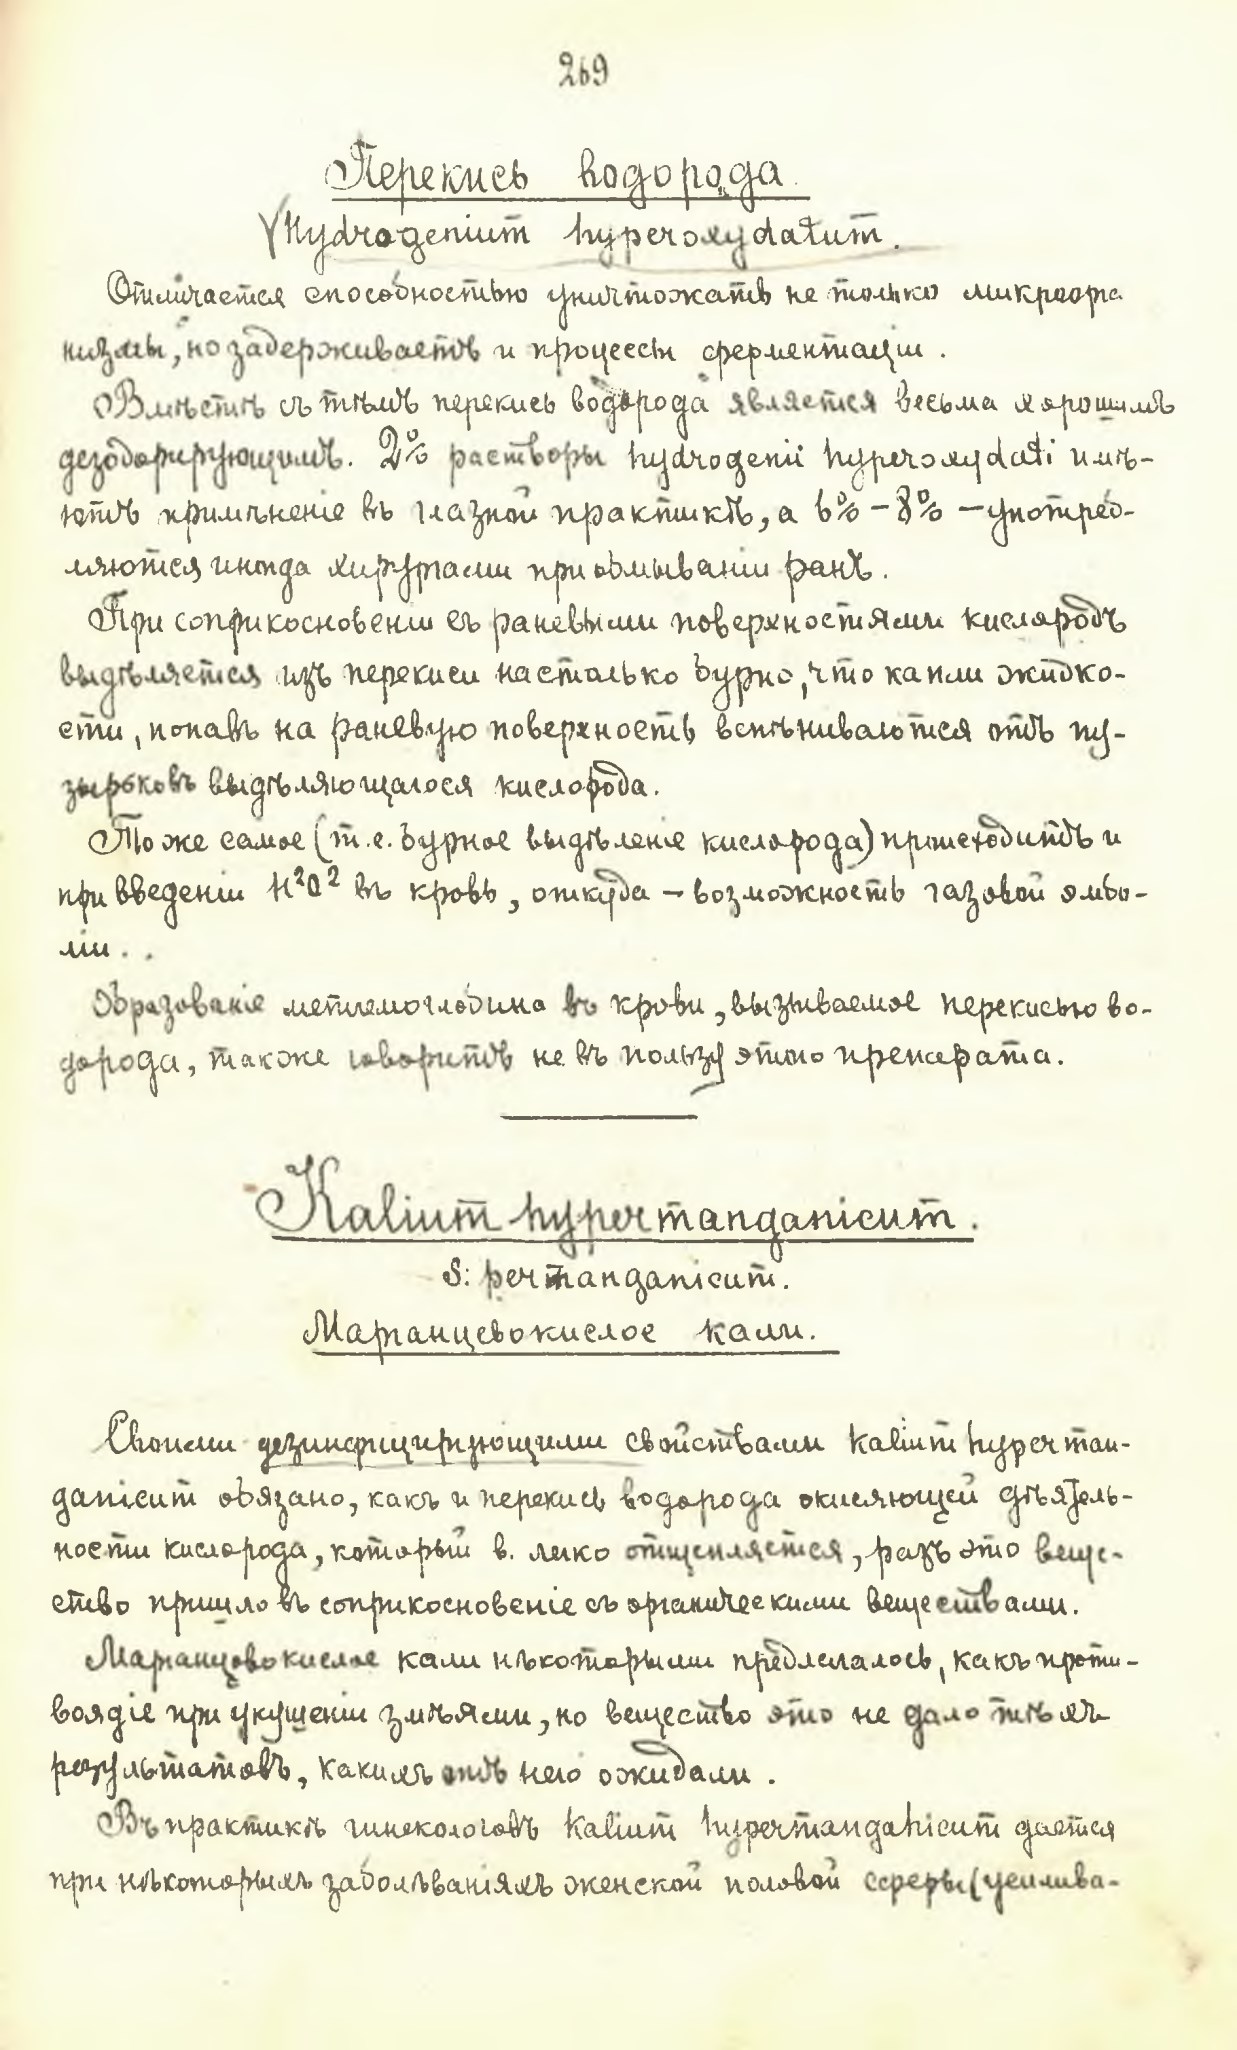 269
Перекись водорода.
Hydrogenium hyperoxydatum.
Отличается способностью уничтожать не только микроорга
низмы, но задерживаетъ и процессы ферментаціи.
Вмѣстѣ съ тѣмъ перекись водорода является весьма хорошимъ
дезодорирующимъ. 2% растворы hydrogenii hyperoxydati имѣ-
ютъ примѣненіе въ глазной практикѣ, а 6% – 8% – употреб-
ляются иногда хирургами при обмываніи ранъ.
При соприкосновеніи съ раневыми поверхностями кислородъ
выдѣляется изъ перекиси настолько бурно, что капли жидко-
сти, попавъ на раневую поверхность вспѣниваются отъ пу-
зырьковъ выдѣляющагося кислорода.
То же самое (т.е. бурное выдѣленіе кислорода) происходитъ и
при введеніи H²O² въ кровь, откуда – возможность газовой эмбо-
ліи..
Образованіе метгемоглобина въ крови, вызываемое перекисью во-
дорода, также говоритъ не въ пользу этого препарата.
Kalium hypermanganicum.
S: permanganicum.
Марганцевокислое кали.
Своими дезинфицирующими свойствами Kalium hyperman-
ganicum обязано, какъ и перекись водорода окисляющей дѣятель-
ности кислорода, который в. легко отщепляется, разъ это веще-
ство пришло въ соприкосновеніе съ органическими веществами.
Марганцовокислое кали нѣкоторыми предлагалось, какъ проти-
воядіе при укушеніи змѣями, но вещество это не дало тѣхъ
результатовъ, какихъ отъ него ожидали.
Въ практикѣ гинекологовъ Kalium hypermanganicum дается
при нѣкоторыхъ заболѣваніяхъ женской половой сферы (усилива-